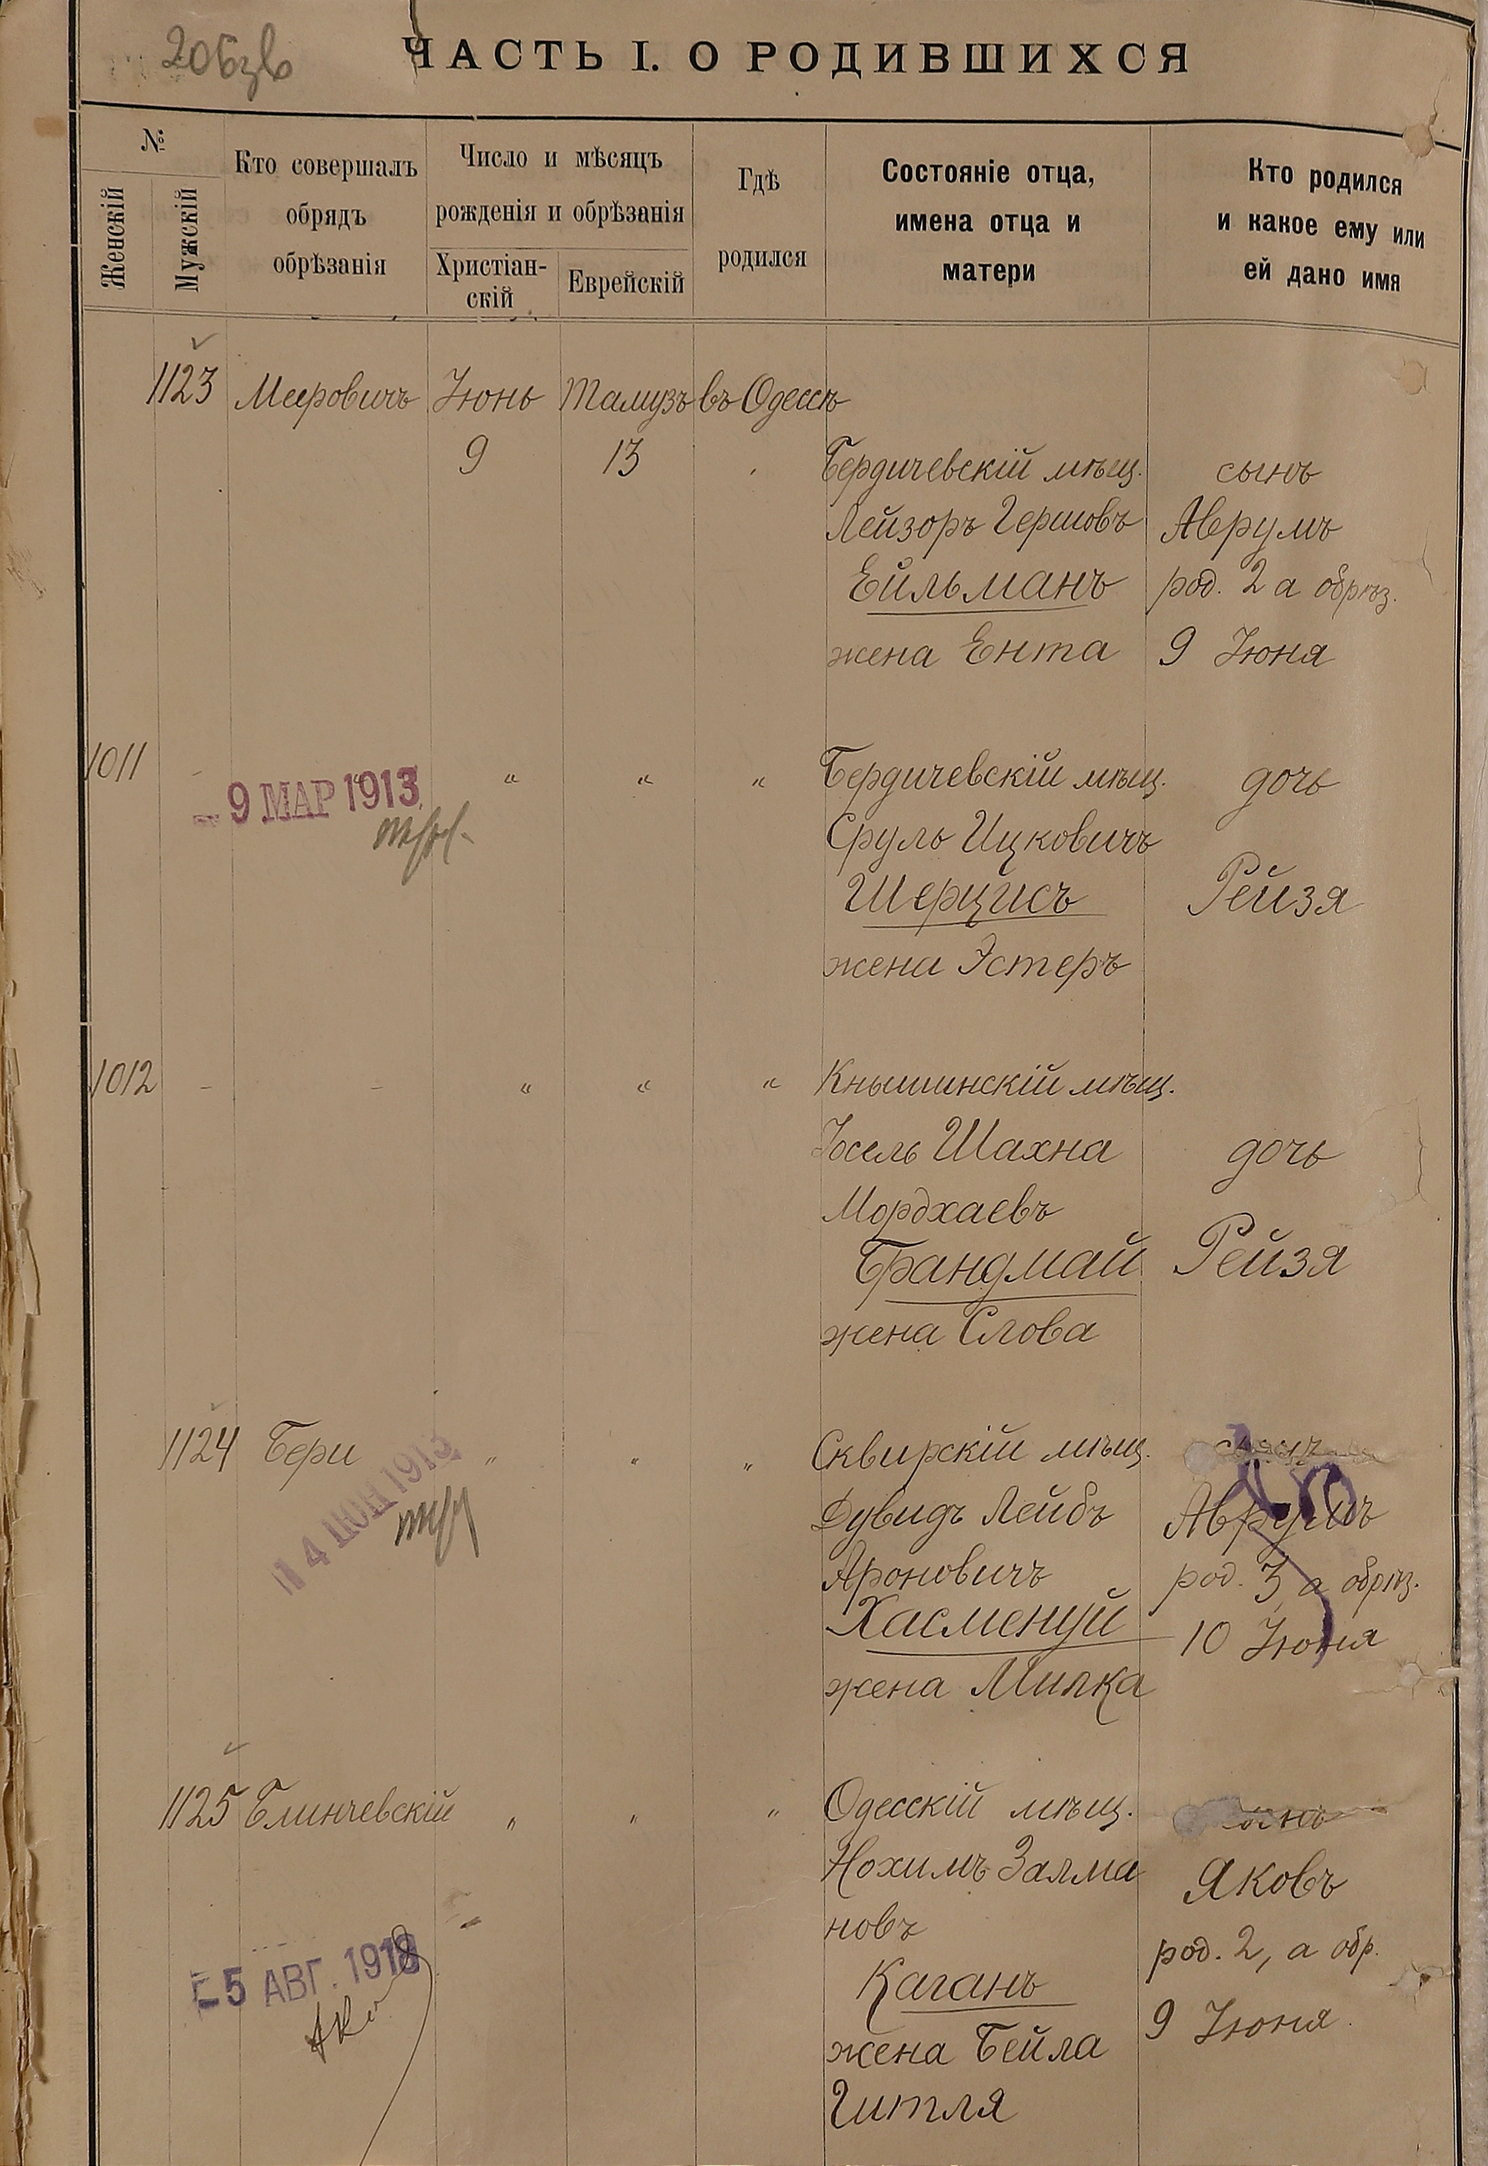 ЧАСТЬ I. О РОДИВШИХСЯ
№
Женскій
Мужскій
Кто совершалъ
обрядъ
обрѣзанія
Число и мѣсяцъ
рожденія и обрѣзанія
Христіан-
скій
Еврейскій
Гдѣ
родился
Состояніе отца,
имена отца и
матери
Кто родился
и какое ему или
ей дано имя
1123 Мееровичъ Іюнь Тамузъ въ Одессѣ
9 13
Бердичевскій мѣщ. сынъ
Лейзоръ Гершовъ Аврумъ
Ейльманъ род. 2 а обрѣз.
жена Ента 9 Іюня
1011 - " " " Бердичевскій мѣщ. дочь
9 МАР 1913
Сруль Ицковичъ
Шерцисъ Рейзя
жена Эстеръ
1012 - - " " " Кнышинскій мѣщ.
Іосель Шахна дочь
Мордхаевъ
Брандмай Рейзя
жена Слова
1124 Бери " " " Сквирскій мѣщ. сынъ
14 ІЮН 1913
Дувидъ Лейбъ Аврумъ
Ароновичъ род. 3 а обрѣз.
Хасменуй 10 Іюня
жена Милка
1125 Блинчевскій " " " Одесскій мѣщ.
Нохимъ Залма Яковъ
новъ
5 АВГ. 1918
род. 2, а обр.
Каганъ
9 Іюня.
жена Бейла
Гитля